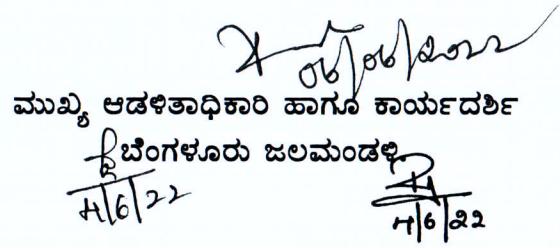 06/06/2022
ಮುಖ್ಯ ಆಡಳಿತಾಧಿಕಾರಿ ಹಾಗೂ ಕಾರ್ಯದರ್ಶಿ
ಬೆಂಗಳೂರು ಜಲಮಂಡಳಿ